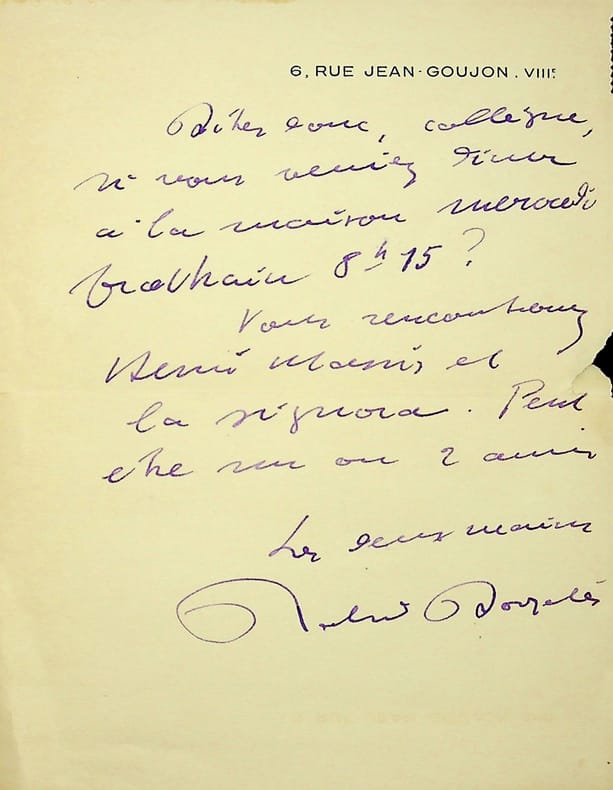 6, RUE JEAN-GOUJON. VIIIE
Dites donc, collègue,
si vous veniez dîner
à la maison mercredi
prochain 8h 15 ?
Vous rencontrerez
Henri Massis et
la signora. Peut
être un ou 2 amis
Les deux mains